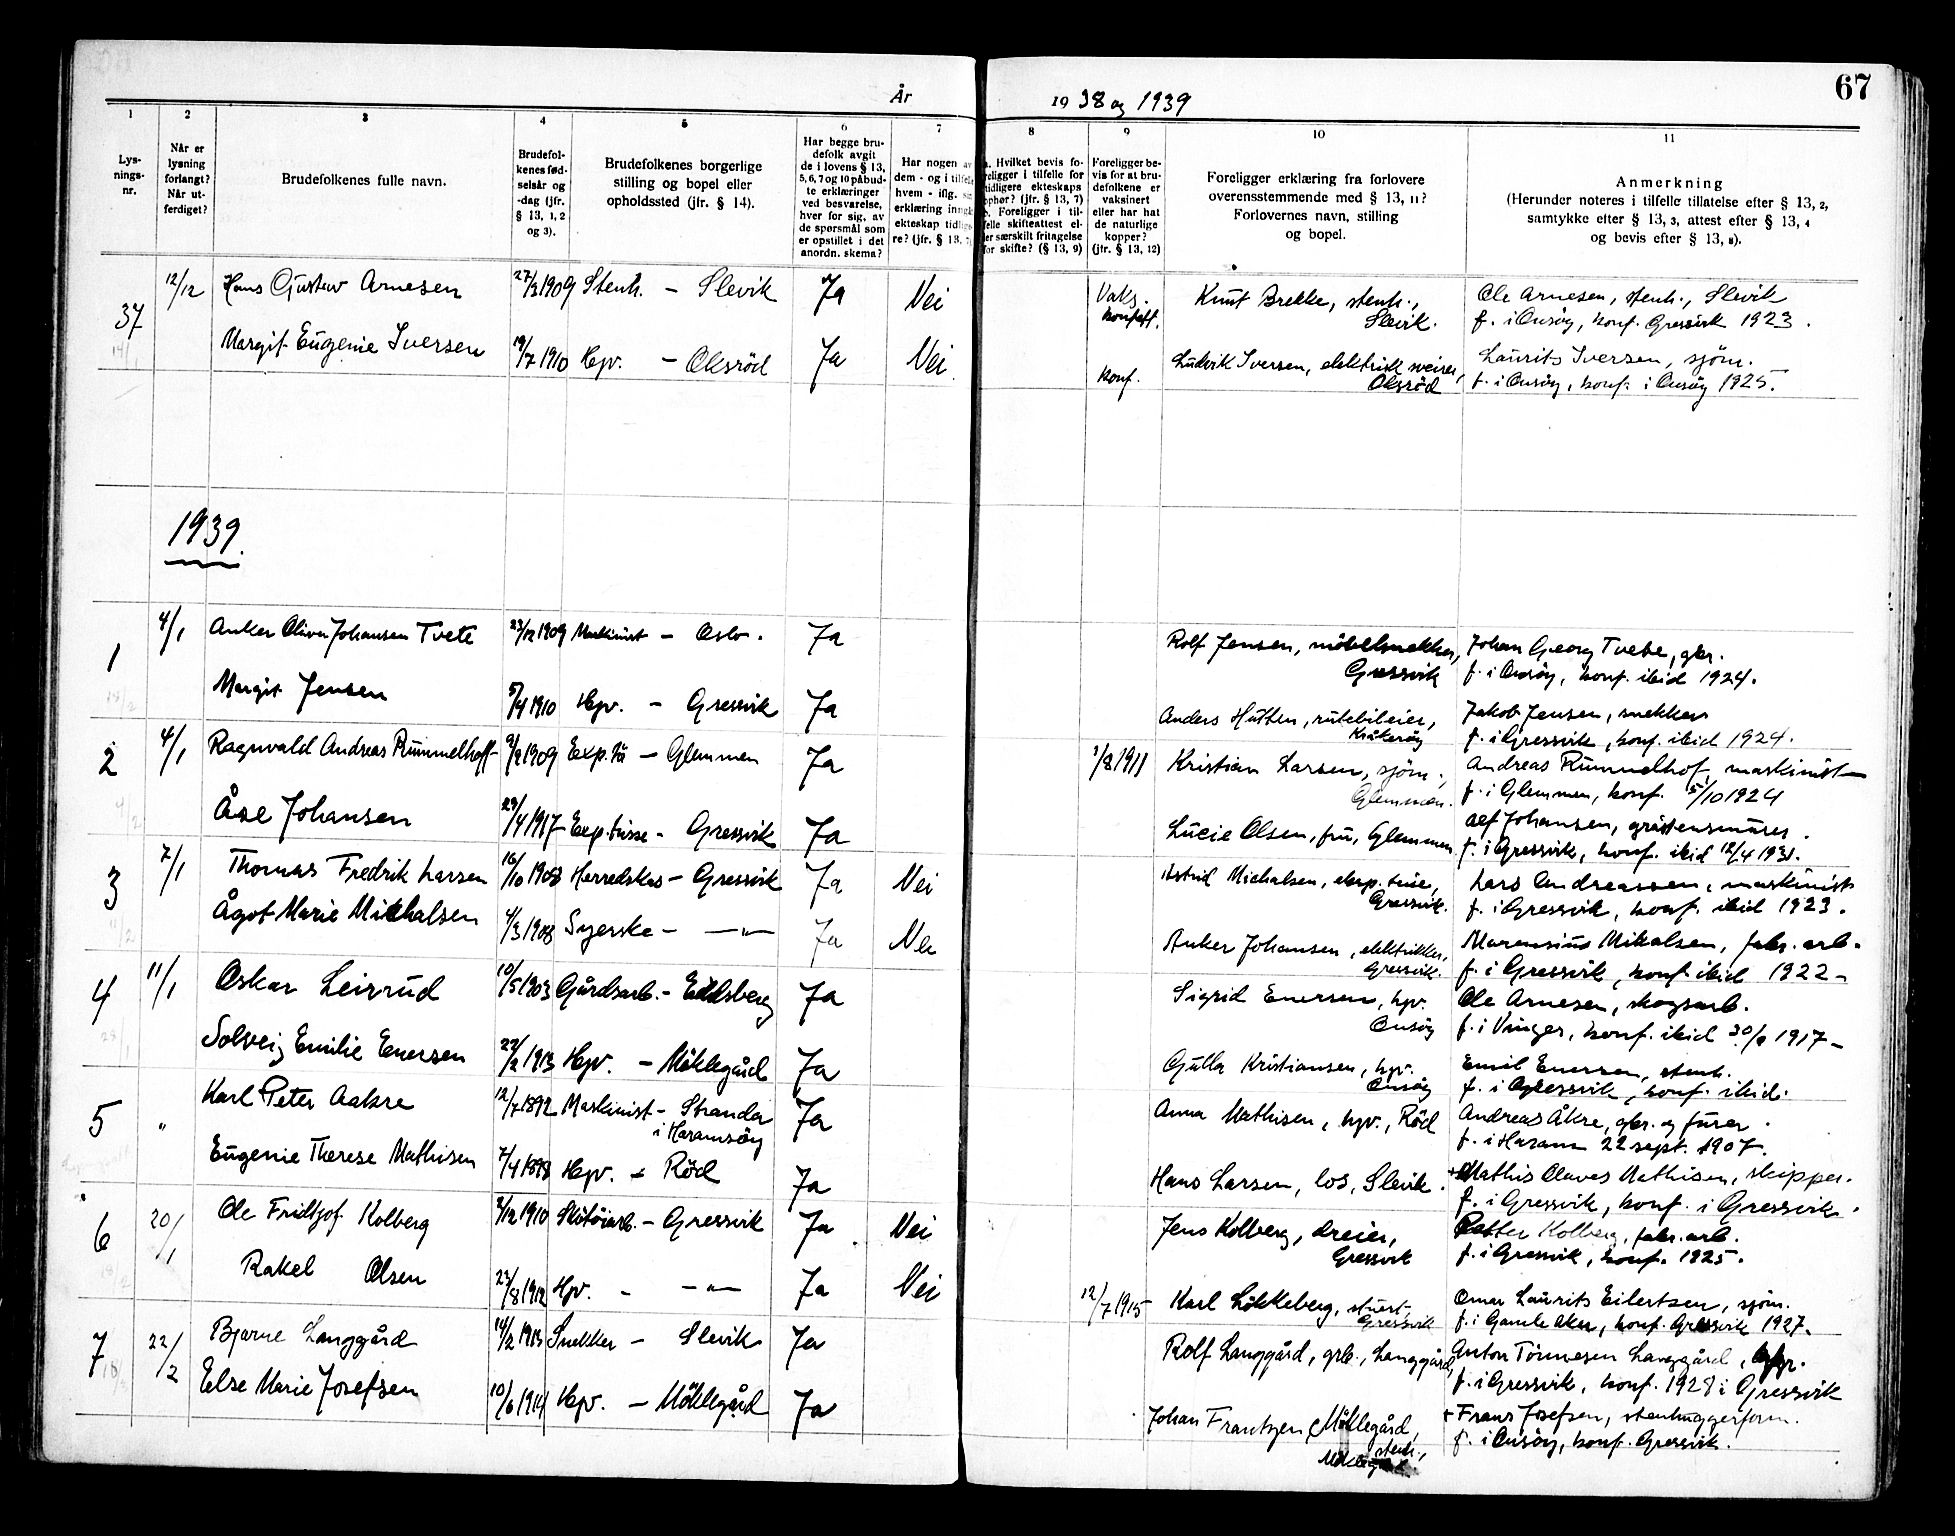 67
År 1938 og 1939
1 2 3 4 5 6 7 8 9 10 11
Lys-
nings-
nr.
Når er
lysning
forlangt?
Når ut-
ferdiget?
Brudefolkenes fulle navn.
Brudefol-
kenes fød-
selsår og
-dag (jfr.
§ 13, 1, 2
og 3).
Brudefolkenes borgerlige
stilling og bopel eller
opholdssted (jfr. § 14).
Har begge bru-
defolk avgit
de i lovens § 13,
5, 6, 7 og 10 påbud-
te erklæringer
ved besvarelse,
hver for sig, av
de spørsmål som
er opstillet i det
anordn. skema?
Har nogen av
dem - og i tilfelle
hvem - iflg. sin
erklæring inngått
ekteskap tidlige-
re? (jfr. § 13, 7)
a. Hvilket bevis fo-
religger i tilfelle for
tidligere ekteskaps
ophør? (jfr. § 13, 7)
b. Foreligger i til-
felle skifteattest el-
ler særskilt fritagelse
for skifte? (§ 13, 9)
Foreligger be-
vis for at bru-
defolkene er
vaksinert
eller har hat
de naturlige
kopper?
(jfr. § 13, 12)
Foreligger erklæring fra forlovere
overensstemmende med § 13, 11?
Forlovernes navn, stilling
og bopel.
Anmerkning
(Herunder noteres i tilfelle tillatelse efter § 13, 2,
samtykke efter § 13, 3, attest efter § 13, 4
og bevis efter § 13, 8).
37 12/12 Hans Gustav Arnesen 27/3 1909 Stenh. — Slevik Ja Nei Vaks. konf.att. Knut Brekke, stenh., Slevik. Ole Arnesen, stenh., Slevik
f. i Onsøy, konf. Gressvik 1923.
Margit Eugenie Iversen 19/7 1910 Hpv. — Oksrød Ja Nei konf. Ludvik Iversen, elektrisk sveiser, Oksrød Laurits Iversen, sjøm.
f. i Onsøy, konf. i Onsøy 1925.
1939.
1 4/1 Anker Oliver Johansen Tvete 23/12 1909 Maskinist — Oslo. Ja Rolf Jensen, møbelsnekker, Gressvik Johan Georg Tvete, gbr.
f. i Onsøy, konf. ibid 1924.
Margit Jensen 5/4 1910 Hpv. — Gressvik Ja Anders Hutten, rutebileier, Kråkerøy Jakob Jensen, snekker
f. i Gressvik, konf. ibid 1924.
2 4/1 Ragnvald Andreas Rummelhoff 9/2 1909 Exp. — Glemmen Ja 1/8 1911 Kristian Larsen, sjøm., Glemmen. Andreas Rummelhof, maskinist
f. i Glemmen, konf. 5/10 1924
Åse Johansen 29/4 1917 Exp.trisse — Gressvik Ja Lucie Olsen, fru, Glemmen Alf Johansen, gråstensmurer.
f. i Gressvik, konf. ibid 12/4 1931.
3 7/1 Thomas Fredrik Larsen 16/10 1908 Herredskas — Gressvik Ja Nei Astrid Michalsen, eksp.trise, Gressvik. Lars Andreassen, maskinist
f. i Gressvik, konf. ibid 1923.
Ågot Marie Michalsen 4/3 1908 Syerske — — " — Ja Nei Anker Johansen, elektriker, Gressvik. Marensius Mikalsen, fabr. arb.
f. i Gressvik, konf. ibid 1922 —
4 11/1 Oskar Leirrud 10/5 1903 Gårdsarb. — Eidsberg Ja Sigrid Enersen, hpv. Onsøy Ole Arnesen, skogsarb.
f. i Vinger, konf. ibid 30/9 1917 —
Solveig Emilie Enersen 22/2 1913 Hpv. — Møklegård Ja Gulla Kristiansen, hpv. Onsøy Emil Enersen, stenh.
f. i Gressvik, konf. ibid.
5 " Karl Peter Aakre 12/7 1892 Maskinist — Stranda i Haramsøy Ja Anna Mathisen, hpv., Rød Andreas Åkre, gbr. og furer.
f. i Haram 22 sept. 1907.
Eugenie Therese Mathisen 7/4 1898 Hpv. — Rød Ja Hans Larsen, los, Slevik. + Mathis Olaves Mathisen, skipper.
f. i Gressvik, konf. i Gressvik.
6 20/1 Ole Fridtjof Kolberg 4/12 1910 Skotøiarb. — Gressvik Ja Nei Jens Kolberg, dreier, Gressvik Petter Kolberg, fabr. arb.
f. i Gressvik, konf. 1925.
Rakel Olsen 23/8 1912 Hpv. — — " — Ja Nei 12/7 1915 Karl Løkkeberg, stuert Gressvik Omar Laurits Eilertsen, sjøm.
f. i Gamle Aker, konf. Gressvik 1927.
7 22/2 Bjarne Langgård 14/2 1913 Snekker — Slevik Ja Rolf Langgård, grb., Langgård, Anton Tønnesen Langgård, gbr.
f. i Gressvik, konf. 1928 i Gressvik
Else Marie Josefsen 10/6 1914 Hpv. — Møklegård Ja Johan Frantzen, Møklegård, stenh., + Frans Josefsen, stenhuggerform.
f. i Onsøy, konf. Gressvik.